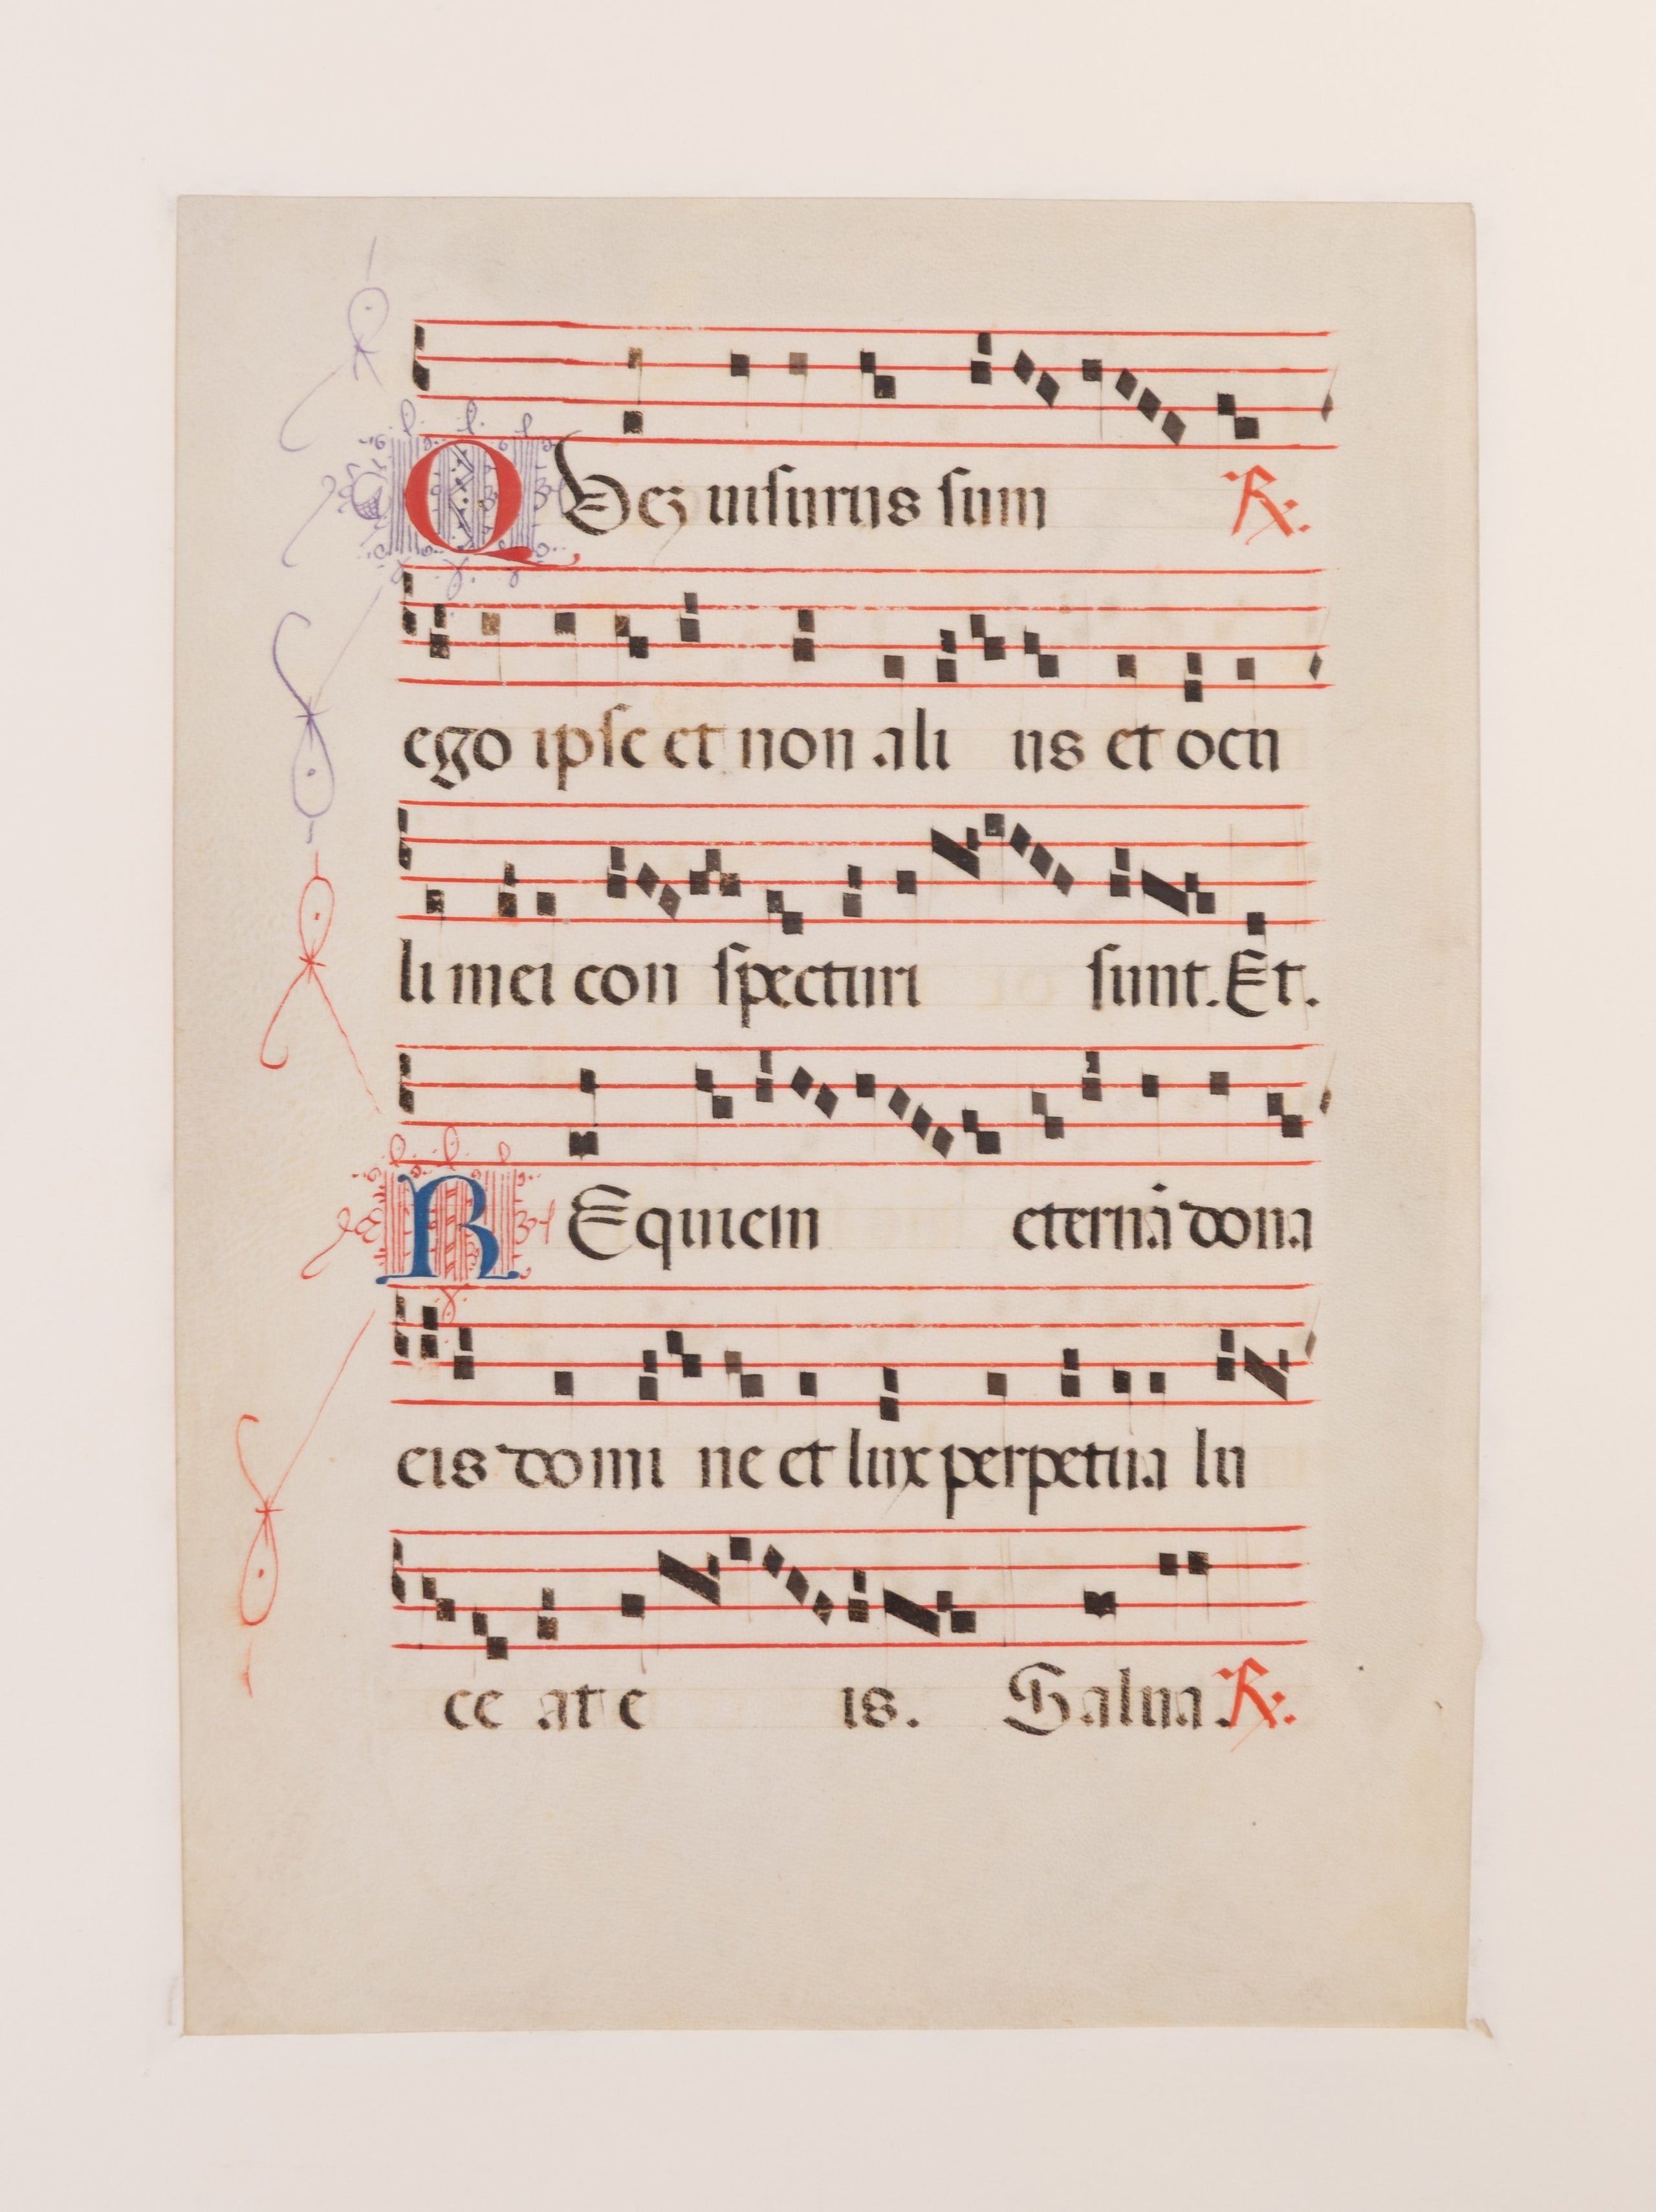 QVeꝫ uisurus sum ℟.
ego ipse et non ali us et ocu
li mei con specturi sunt. Et.
REquiem eternā dona
eis domi ne et lux perpetua lu
ce at e is. Salua. ℟.